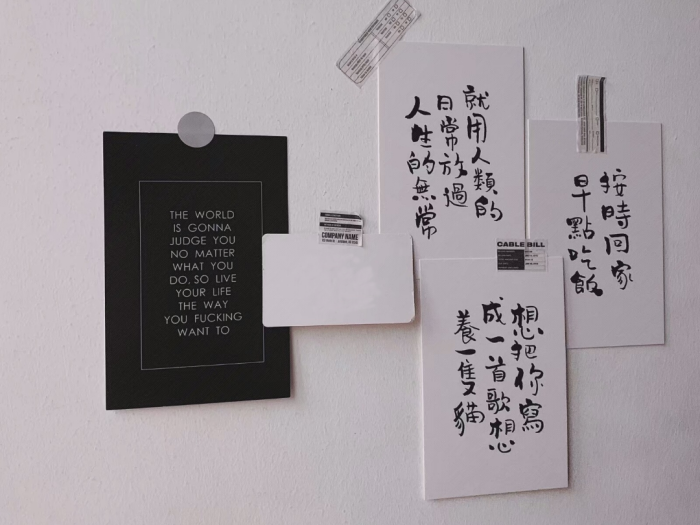 THE WORLD
IS GONNA
JUDGE YOU
NO MATTER
WHAT YOU
DO. SO LIVE
YOUR LIFE
THE WAY
YOU FUCKING
WANT TO
COMPANY NAME
就用人類的
日常放過
人生的無常
按時回家
早點吃飯
CABLE BILL
想把你寫
成一首歌想
養一隻貓